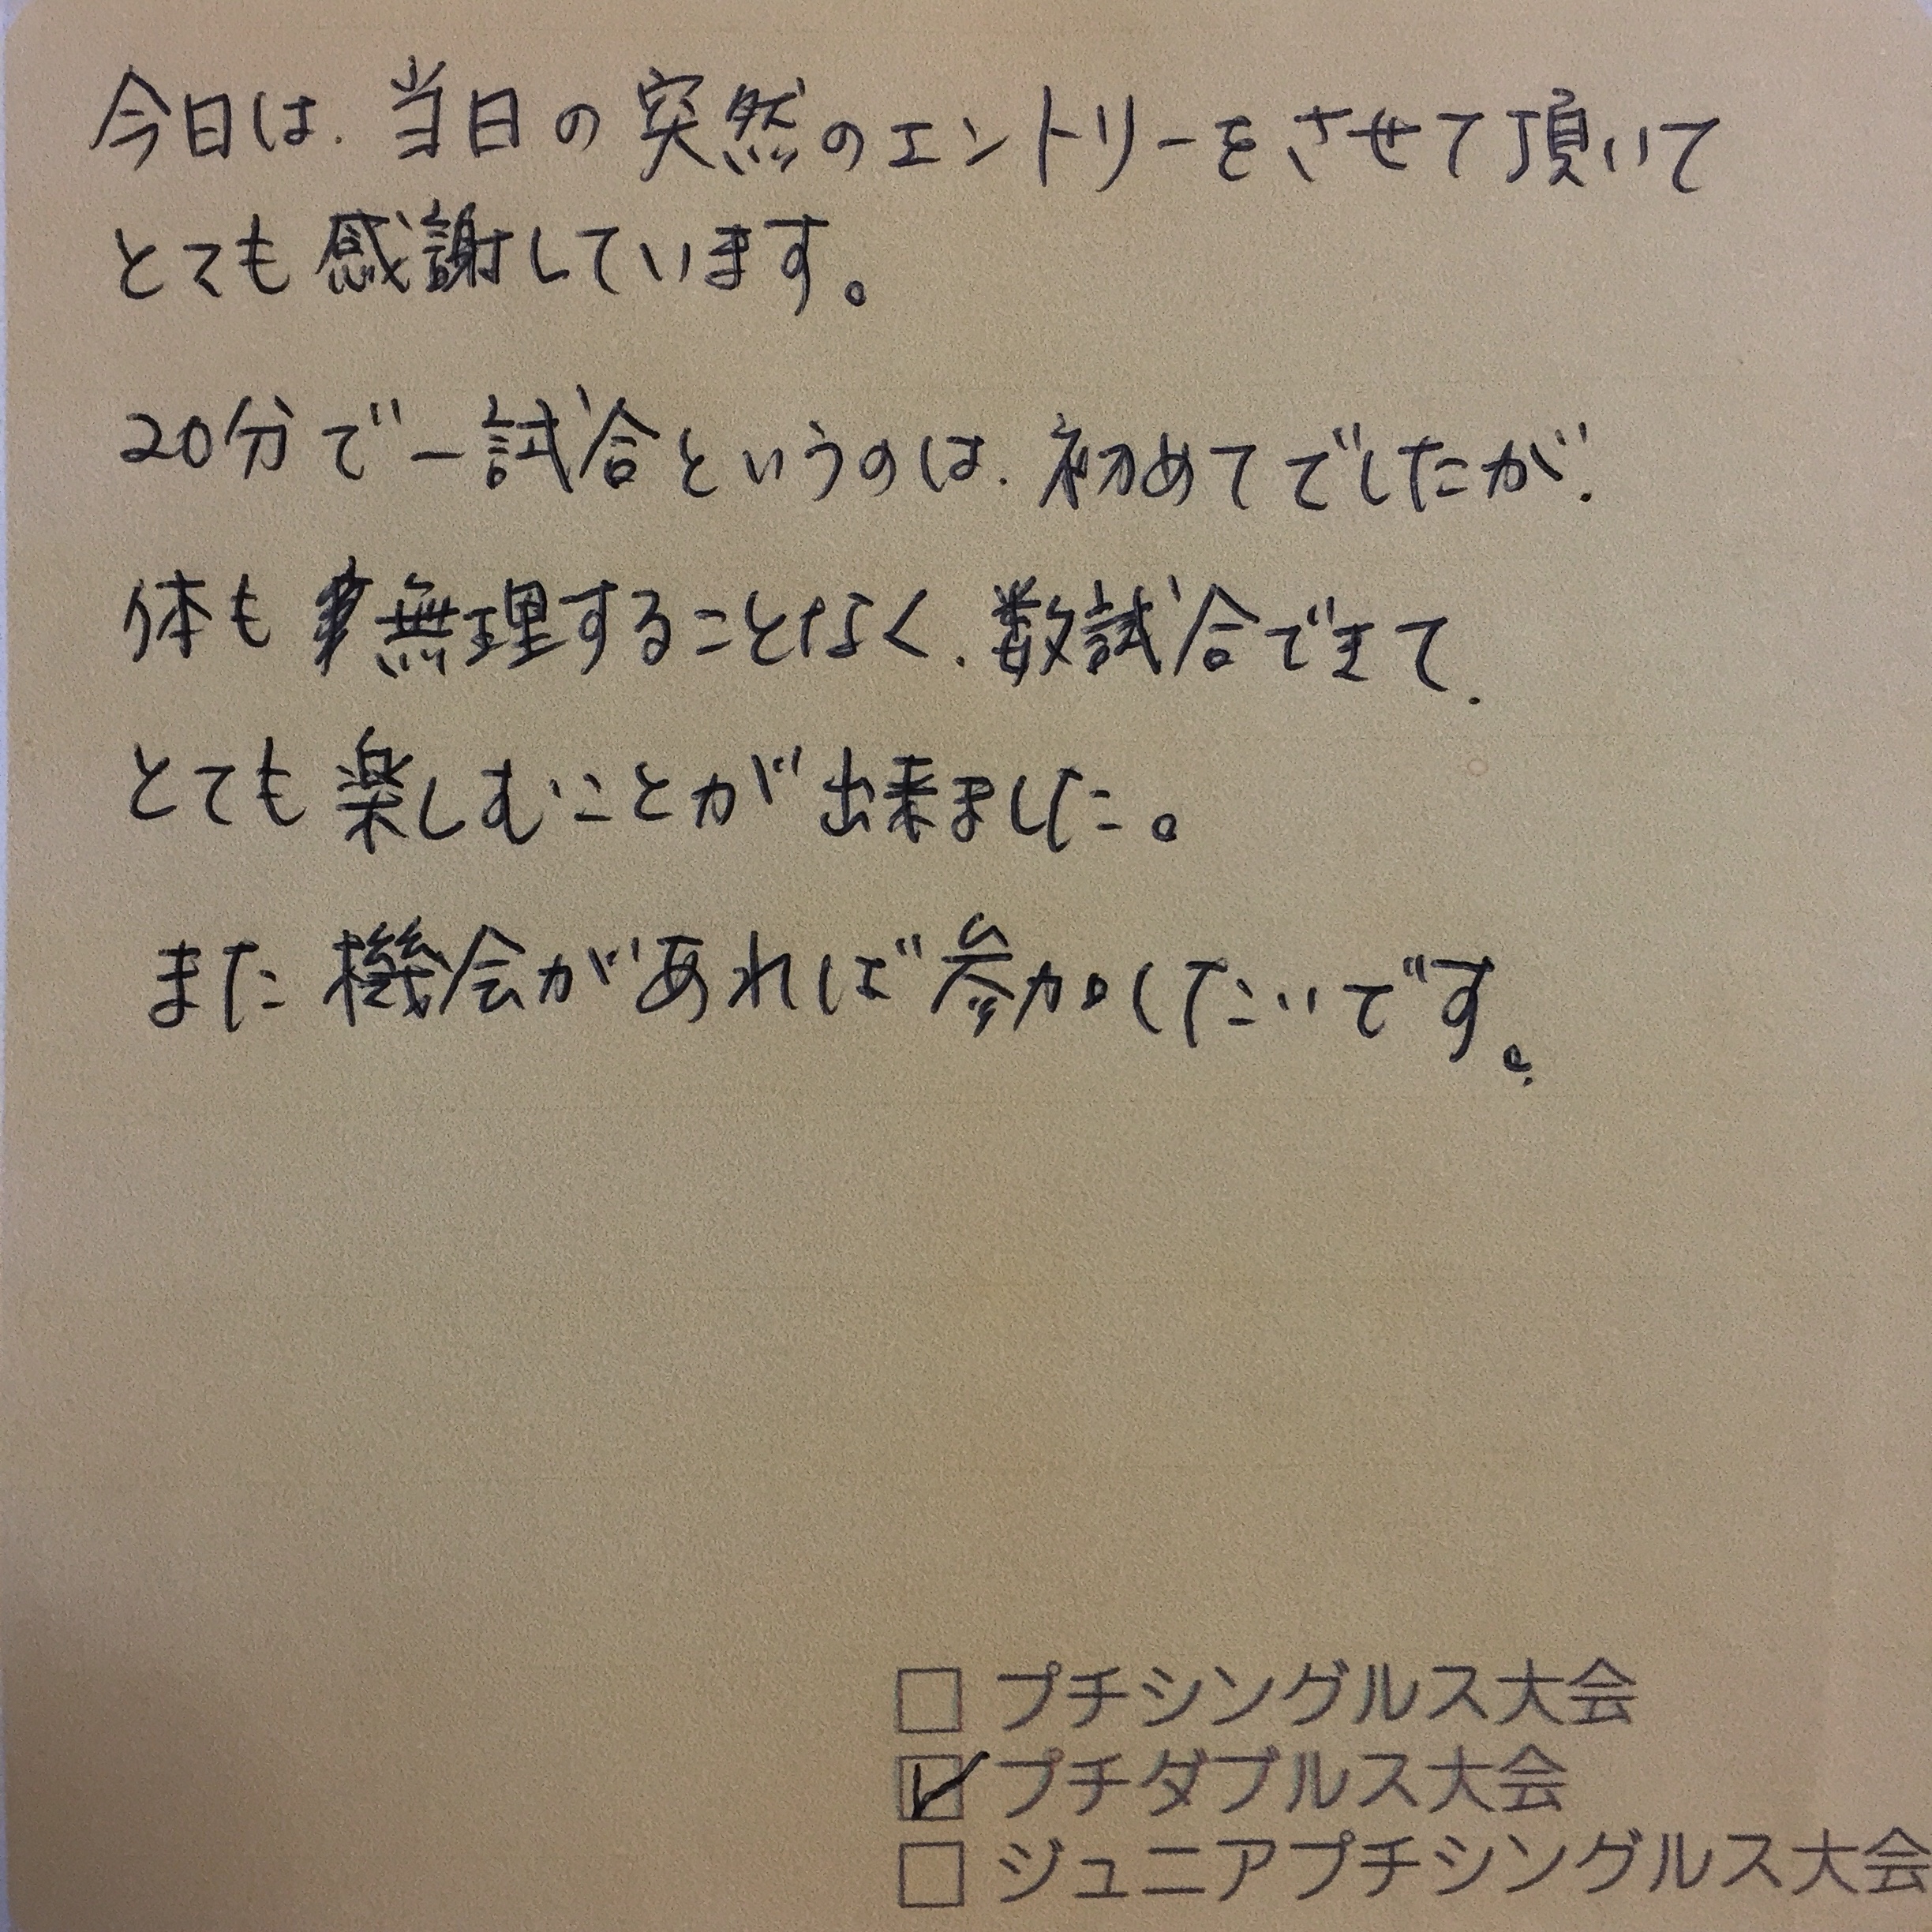 今日は、当日の突然のエントリーをさせて頂いて
とても感謝しています。
20分で一試合というのは、初めてでしたが、
体も無理することなく、数試合できて、
とても楽しむことが出来ました。
また機会があれば参加したいです。
□ プチシングルス大会
☑ プチダブルス大会
□ ジュニアプチシングルス大会